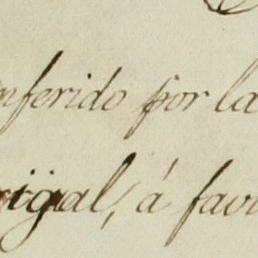 nferido por la
igal, á favo